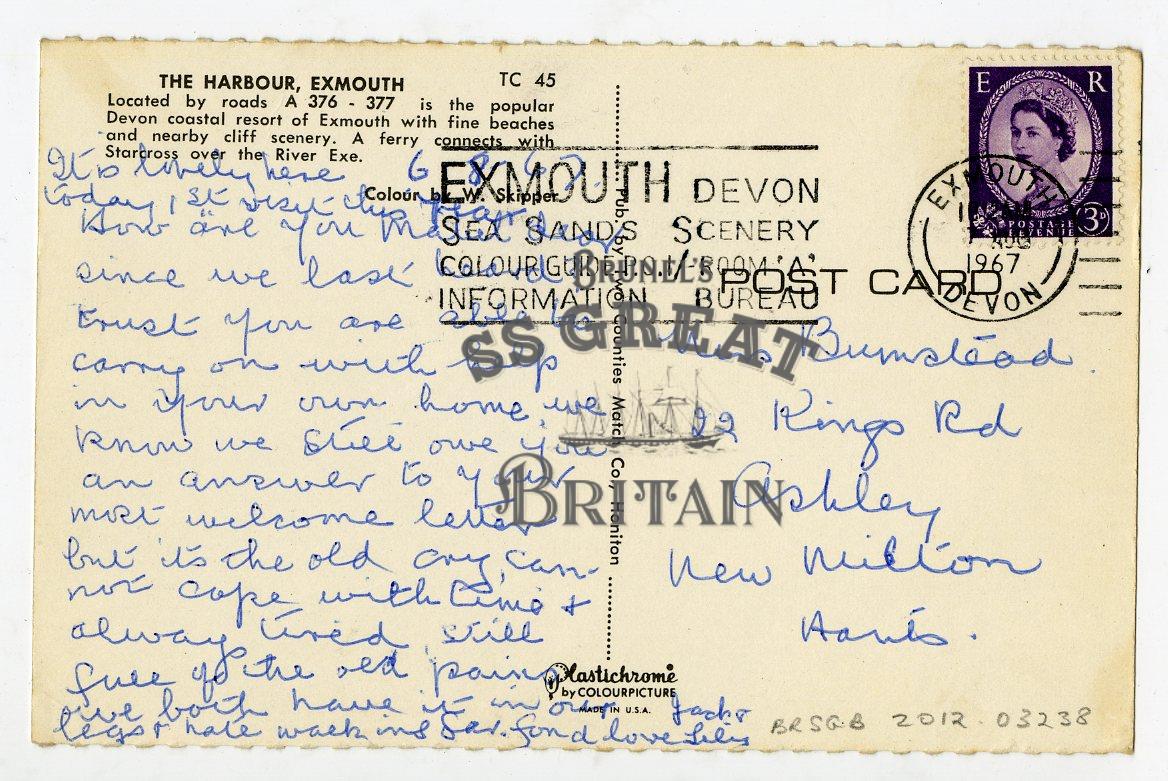 THE HARBOUR, EXMOUTH
TC 45
Located by roads A 376 - 377 is the popular
Devon coastal resort of Exmouth with fine beaches
and nearby cliff scenery. A ferry connects with
Starcross over the River Exe.
Colour by W. Skipper
6 8 67
It is lovely here
today, 1st visit this year
How are you
since we last heard
trust you are able to
carry on with help
in your own home we
know we still owe you
an answer to your
most welcome letter
but its the old cry, can-
not cope with time +
alway tired, still
full of the old pains
we both have it in our
legs + hate walking far. fond love Lily
Jack +
EXMOUTH DEVON
SEA SANDS SCENERY
COLOUR GUIDE ROOM 'A'
INFORMATION BUREAU
E R
POSTAGE
REVENUE
3D
EXMOUTH
AUG
1967
DEVON
POST CARD
Pub. by Two Counties Match Co., Honiton
Mrs Bumstead
22 Kings Rd
Ashley
New Milton
Hants.
Plastichrome
by COLOURPICTURE
MADE IN U.S.A.
BRSGB 2012.03238
BRUNEL'S
SS GREAT
BRITAIN